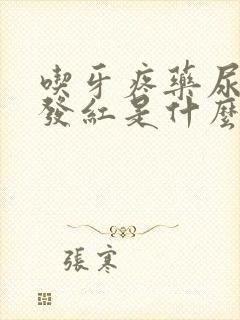 喫牙疼藥尿
發紅是什麼
張寒